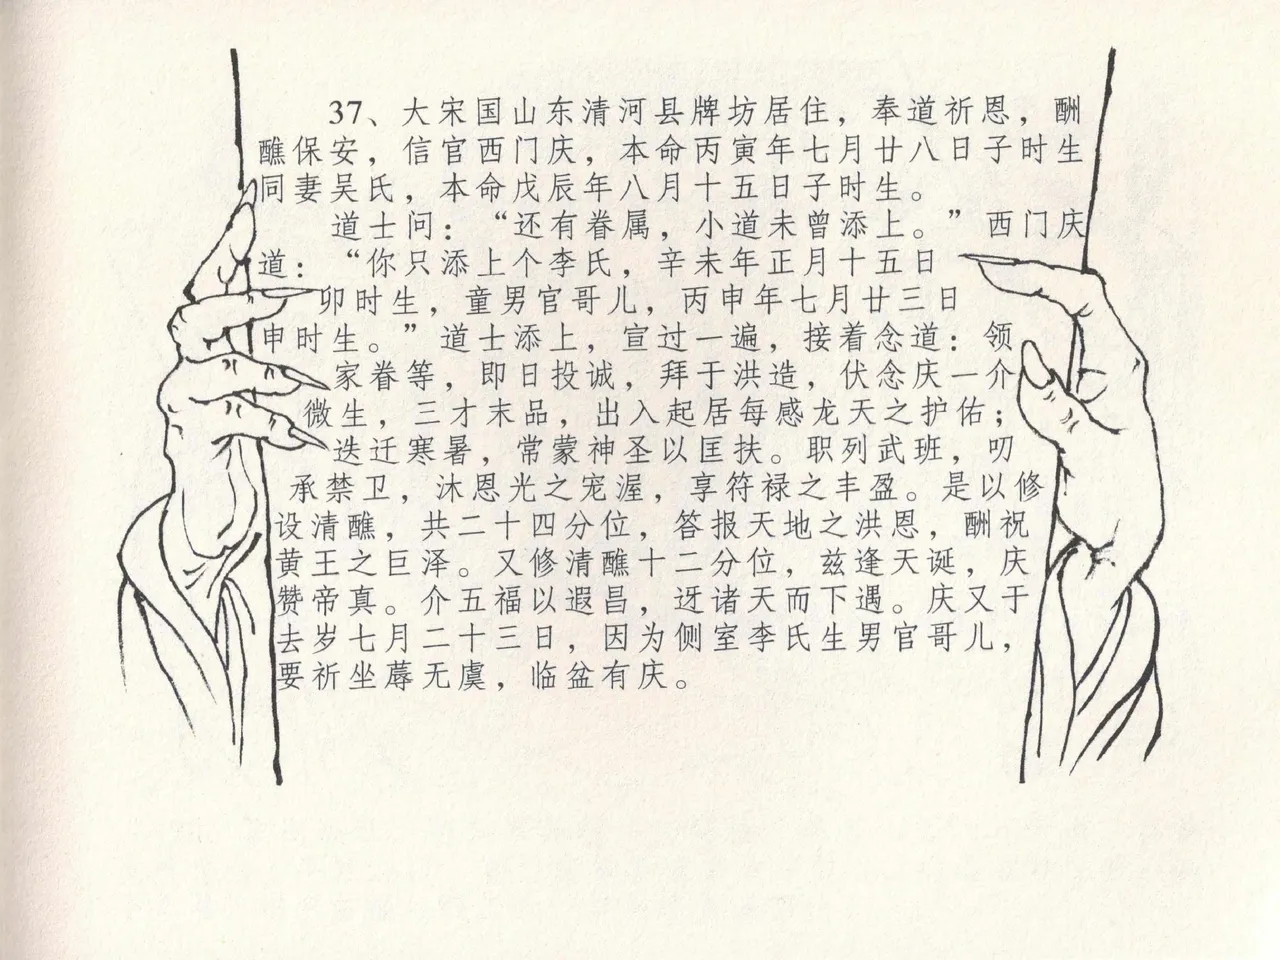 37、大宋国山东清河县牌坊居住，奉道祈恩，酬
醮保安，信官西门庆，本命丙寅年七月廿八日子时生
同妻吴氏，本命戊辰年八月十五日子时生。
道士问：“还有眷属，小道未曾添上。”西门庆
道：“你只添上个李氏，辛未年正月十五日
卯时生，童男官哥儿，丙申年七月廿三日
申时生。”道士添上，宣过一遍，接着念道：领
家眷等，即日投诚，拜于洪造，伏念庆一介
微生，三才末品，出入起居每感龙天之护佑；
迭迁寒暑，常蒙神圣以匡扶。职列武班，叨
承禁卫，沐恩光之宠渥，享符禄之丰盈。是以修
设清醮，共二十四分位，答报天地之洪恩，酬祝
黄王之巨泽。又修清醮十二分位，兹逢天诞，庆
赞帝真。介五福以遐昌，迓诸天而下遇。庆又于
去岁七月二十三日，因为侧室李氏生男官哥儿，
要祈坐蓐无虞，临盆有庆。